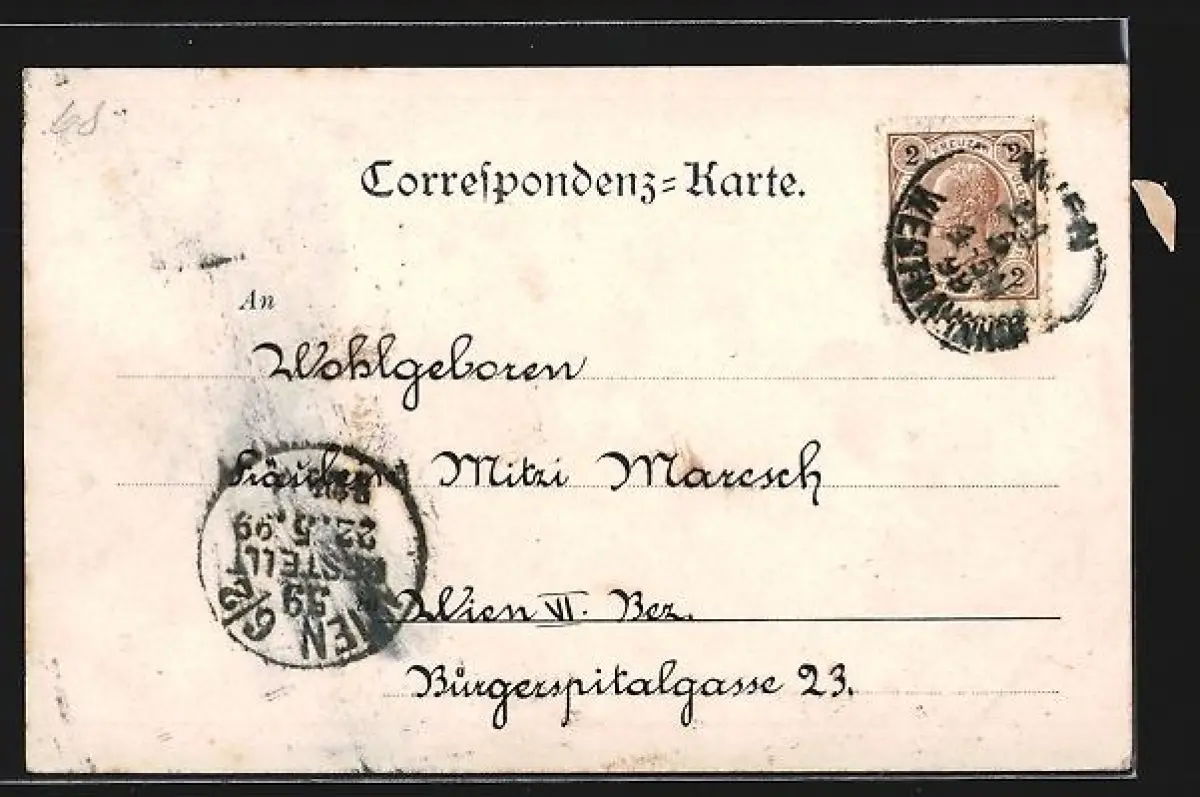 Correſpondenz=Karte.
2 KREUZER 2
2
WIEN
WESTBAHNHOF
An
Wohlgeboren
Fräulein Mitzi Maresch
Wien VI. Bez.
Bürgerspitalgasse 23.
WIEN 6/2
59
BESTELLT
22.5.99